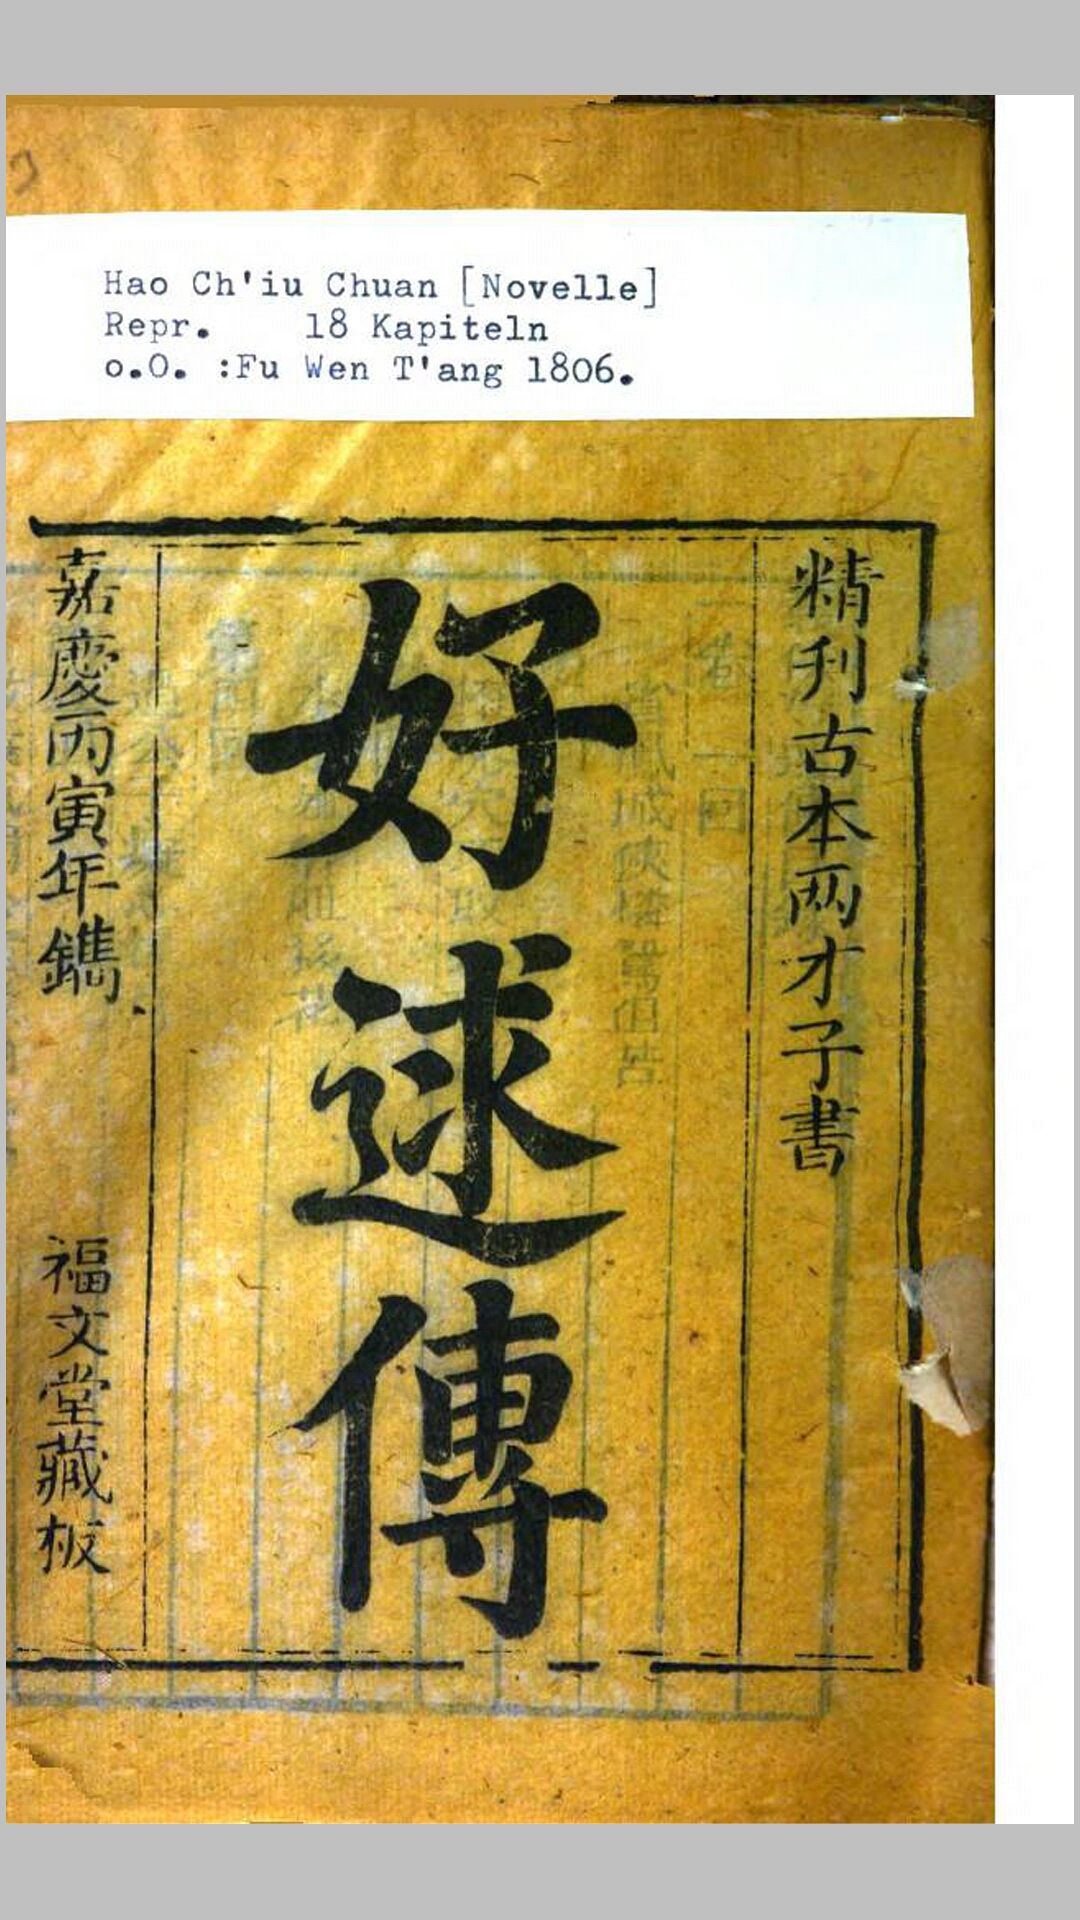 Hao Ch'iu Chuan [Novelle]
Repr. 18 Kapiteln
o.O. :Fu Wen T'ang 1806.
精刋古本两才子書
好逑傳
嘉慶丙寅年鐫
福文堂藏板